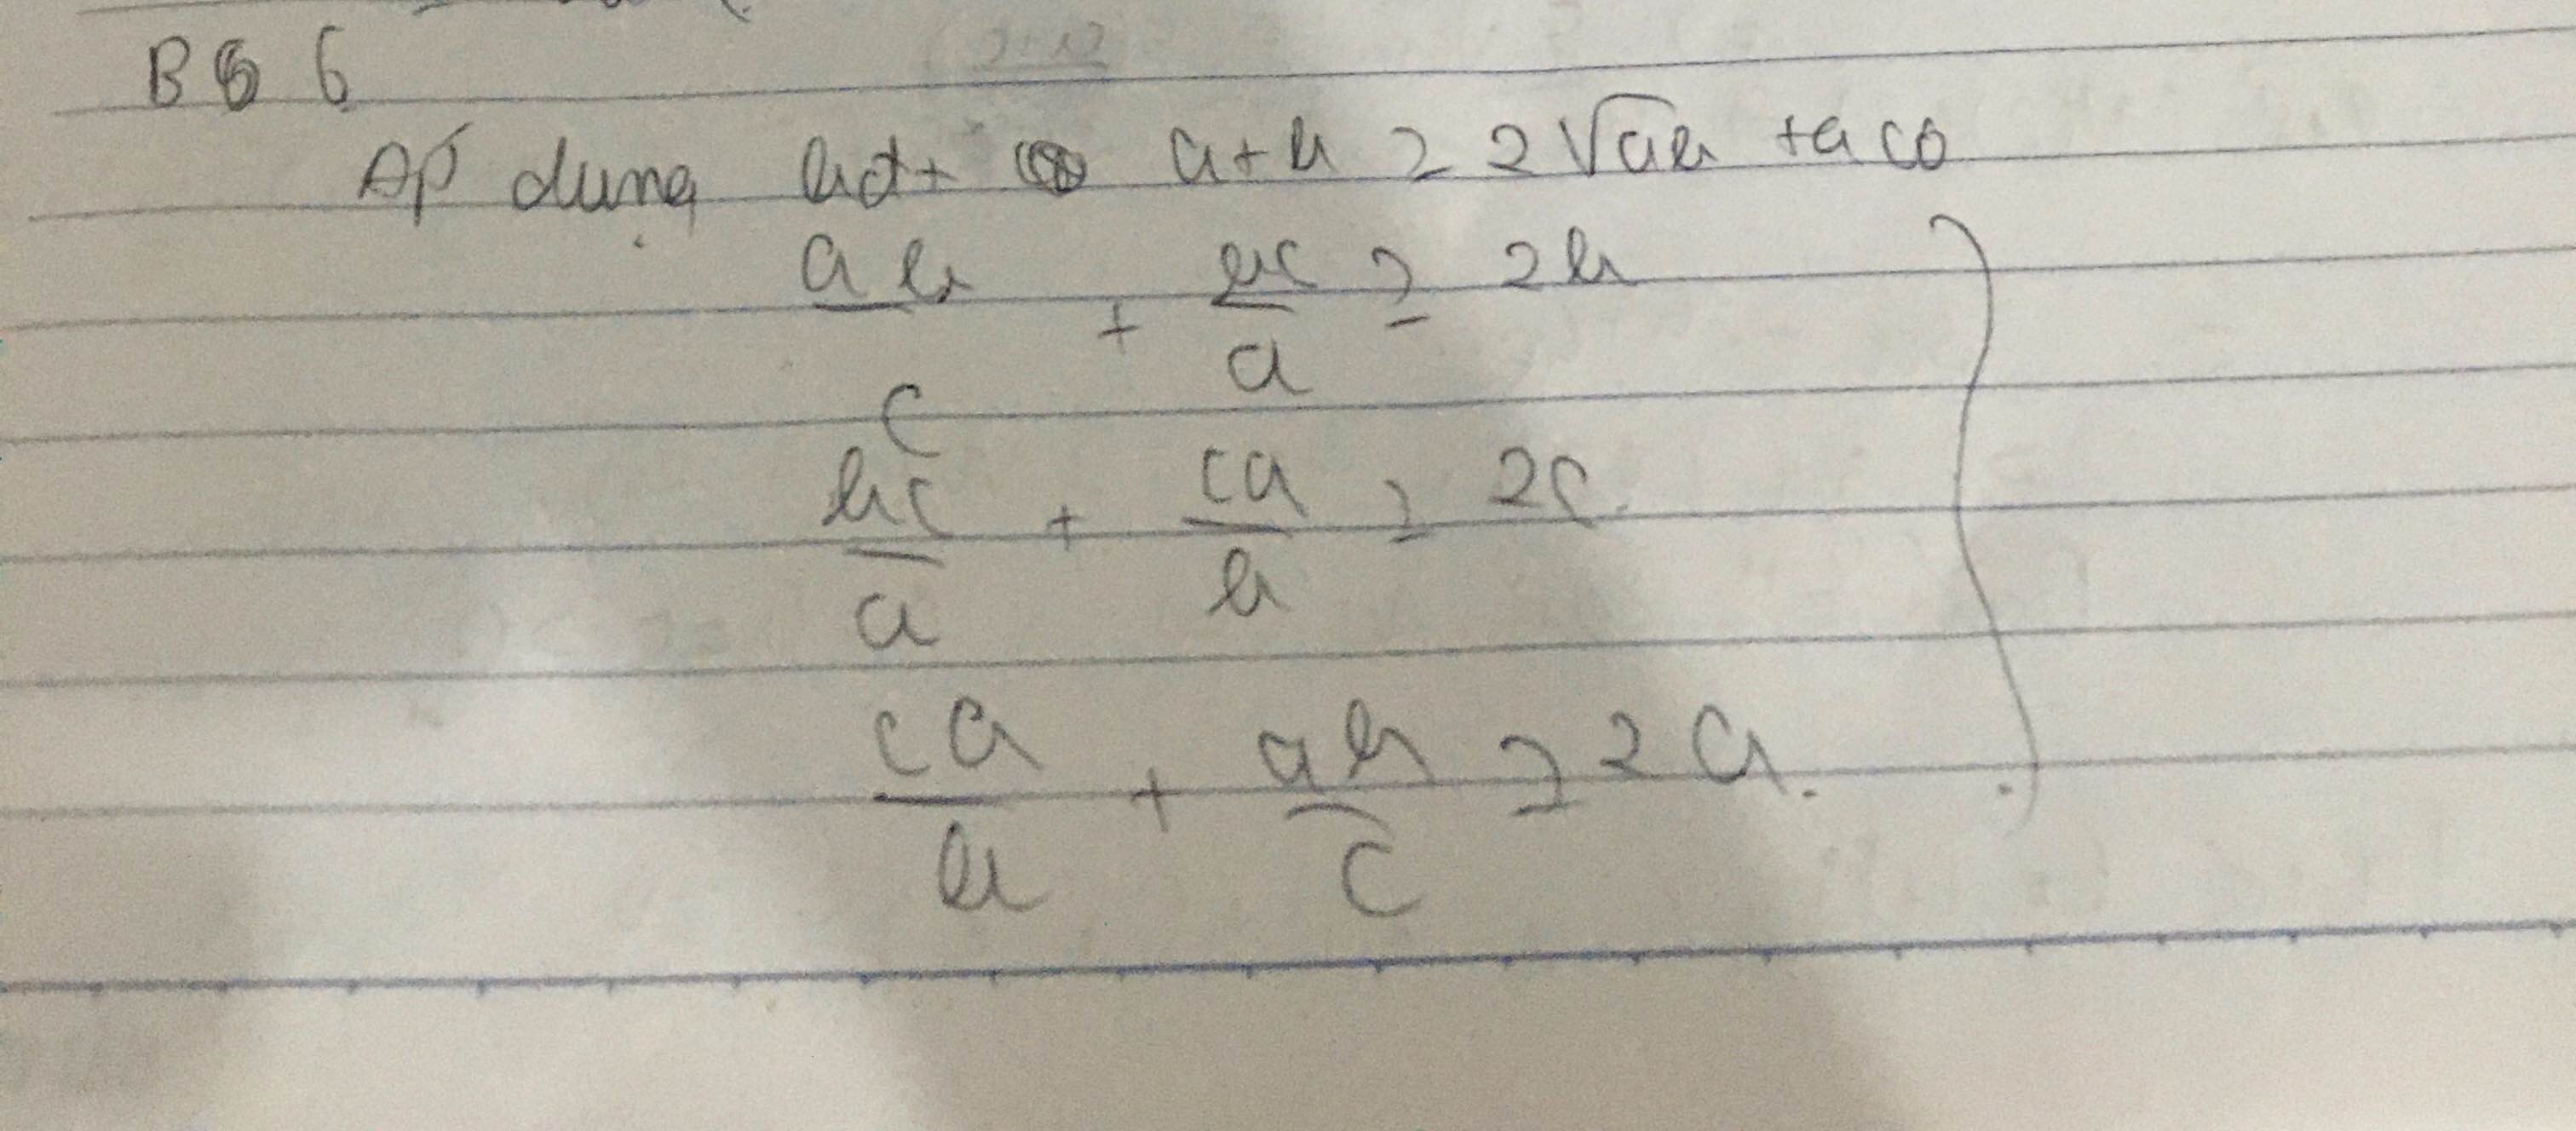 Bài 6
Áp dụng bđt a + b ≥ 2√ab ta có
ab/c + bc/a ≥ 2b
bc/a + ca/b ≥ 2c.
ca/b + ab/c ≥ 2a.